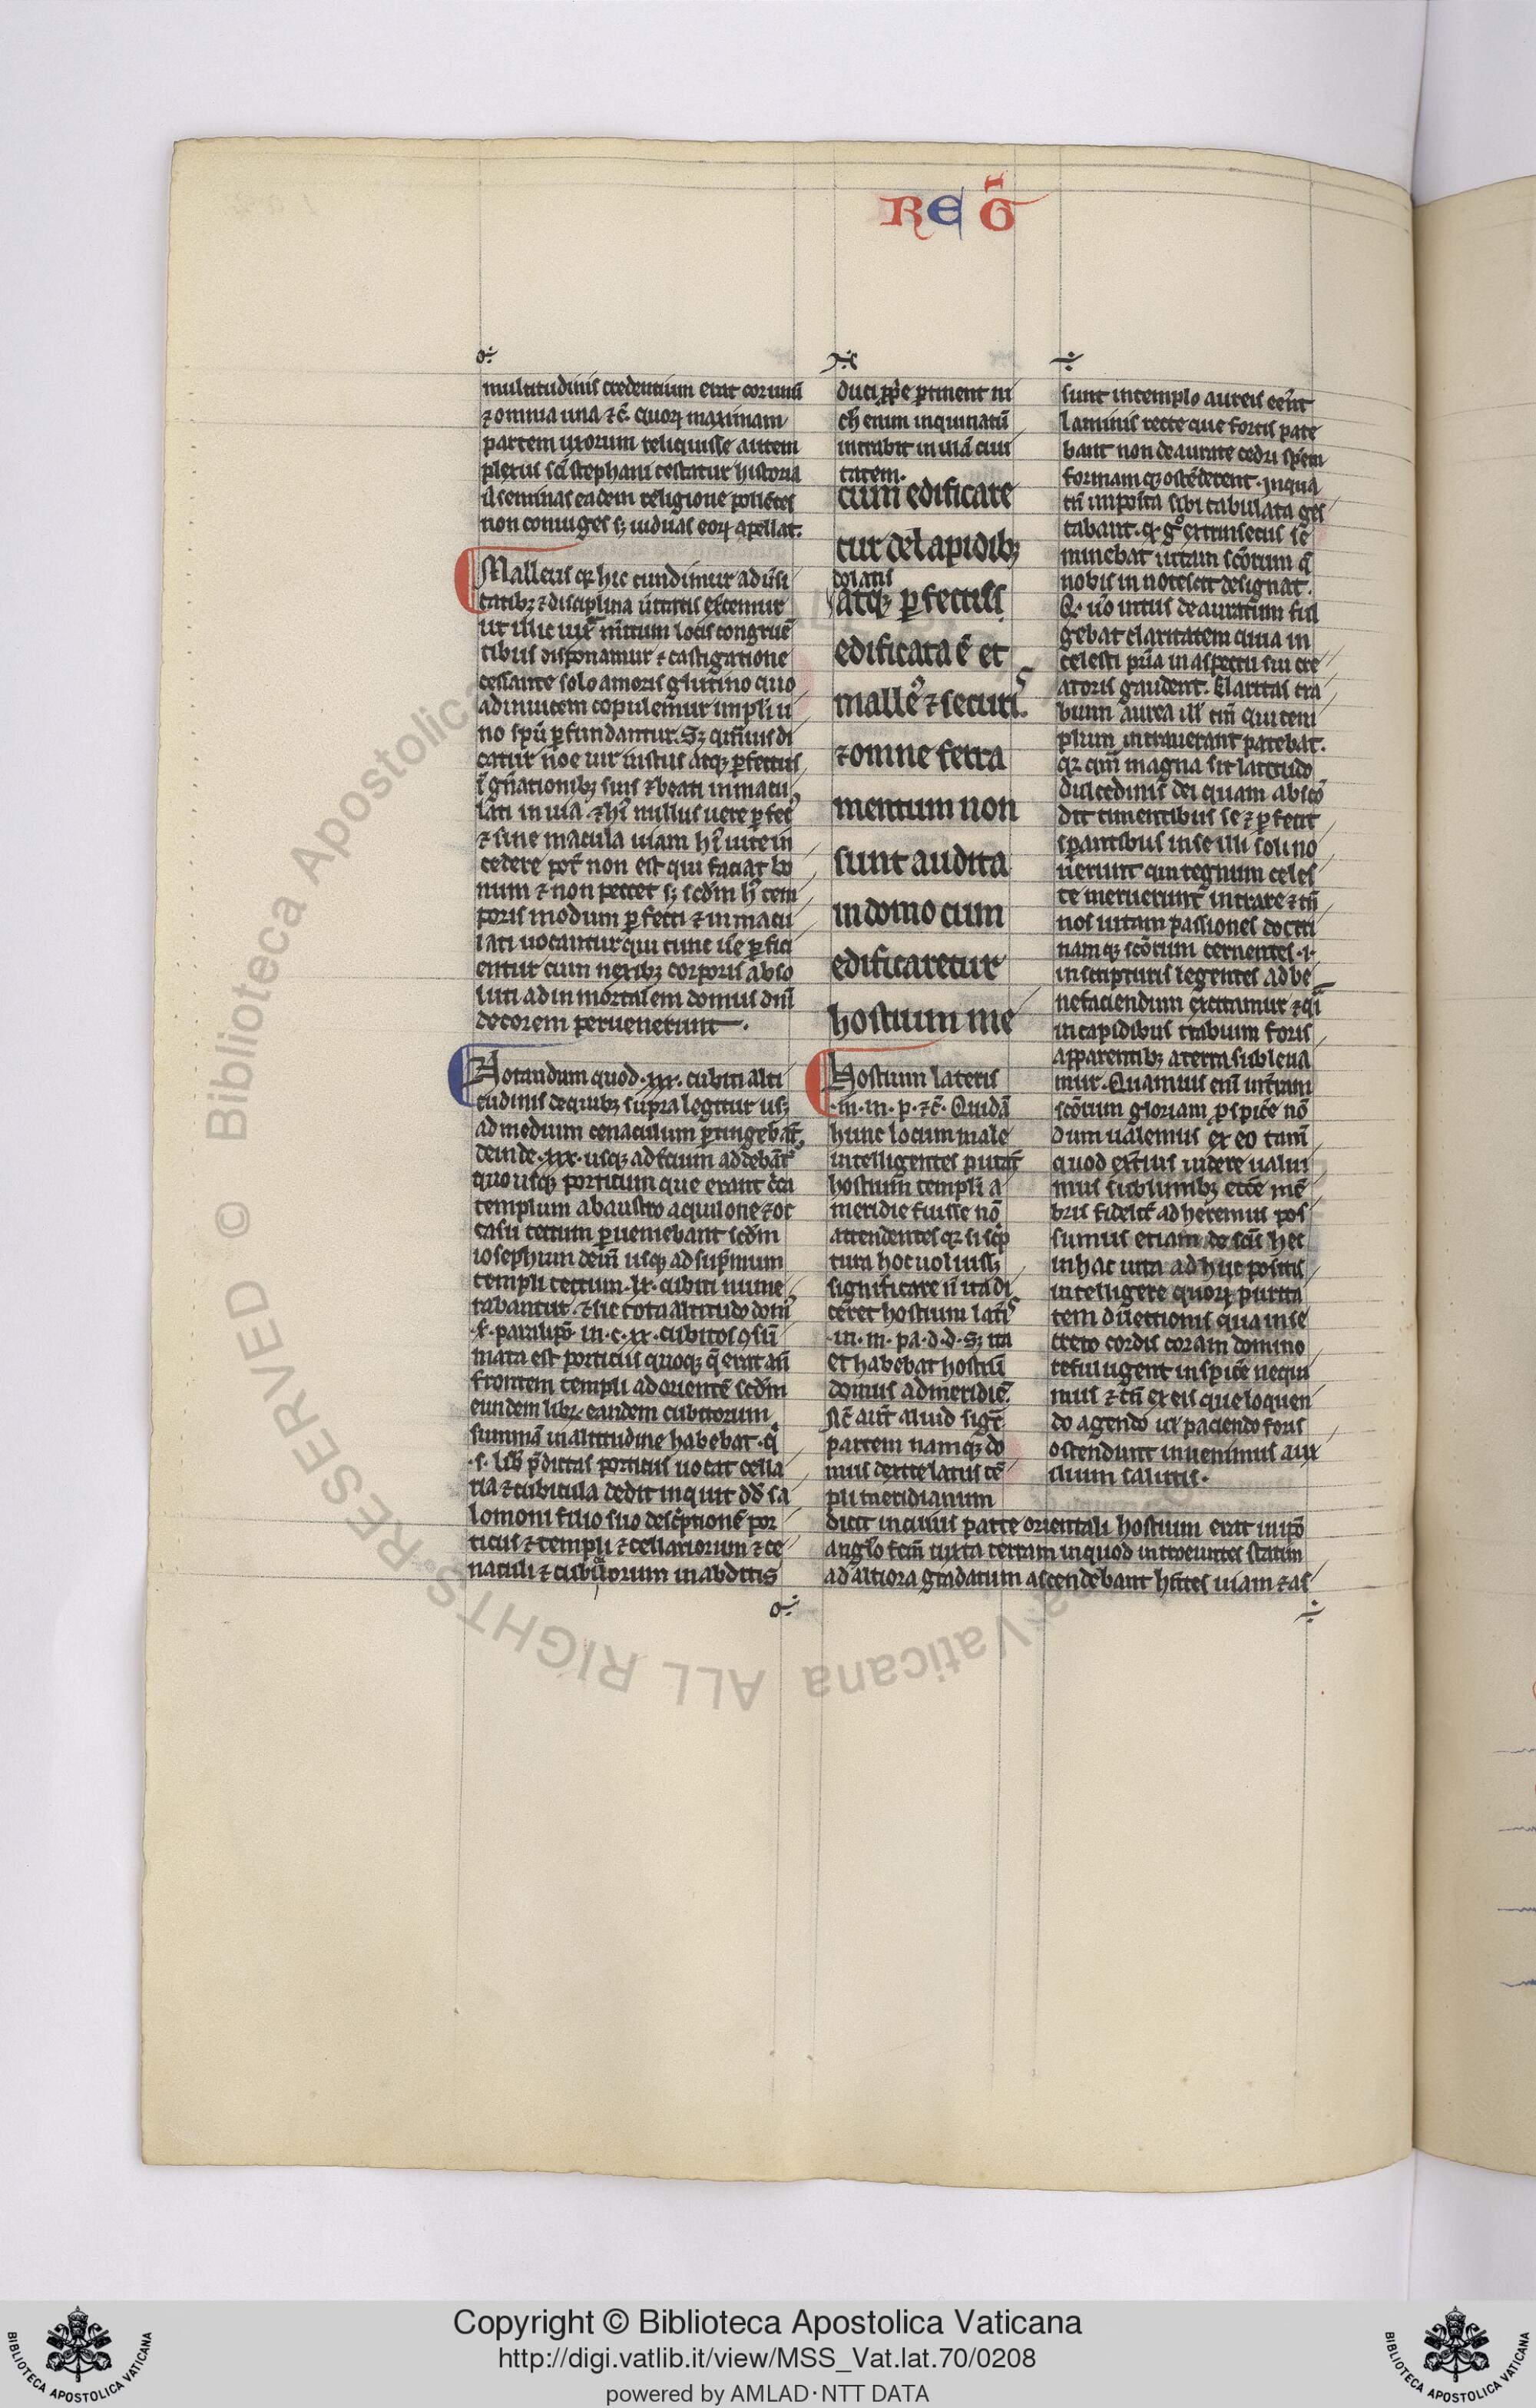 REG̃
multitudinis credentium erat cor unū
⁊ omnia una ⁊ c̃. quoꝝ maximam
partem uxorum reliquisse autem
plerius sc̄i stephani testatur historia
non coniuges sꝫ uiduas eoꝝ apellat.
Malleis qꝛ hic tundimur
ut illic iuxͣ m̄itum locis congruē
tibus disponamur ⁊ castigatione
cessante solo amoris glutino quo
ad inuicem copulemur impleti u
no sp̄u ꝑfundantur. Sꝫ qm̄uis di
catur noe uir iustus atqꝫ ꝑfectus
ī gn̄ationibꝫ suis ⁊ beati inmacu
lati in uia ⁊ hͥ nullus uere ꝑfec
⁊ sine macula uiam hͥ uite in
cedere pot̃ non est qui faciat bo
num ⁊ non peccet sꝫ scd̄m hͥ tem
poris modum ꝑfecti ⁊ inmacu
lati uocantur qui tunc ꝑfici
entur cum nexibꝫ corporis abso
luti ad inmortalem domus dn̄i
decorem peruenerunt.
Notandum quod .xxx. cubiti alti
tudinis de quibꝫ supra legitur usqꝫ
ad medium cenaculum ꝑtingebat̃
deinde .xxx. usqꝫ ad t̃cium addebāt̃
quousqꝫ porticum que erant cͣca
templum ab austro aquilone ⁊ oc
casu tectum ꝑueniebant scd̄m
iosephum dein̄ usqꝫ ad sup̄mum
templi tectum .lx. cubiti nume
rabantur. ⁊ sic tota altitudo dom
in .c.xx. cubitos ꝯsū
mata est porticus quoqꝫ q̄ erat an̄
frontem templi ad orientē scd̄m
eundem libꝝ. eandem cubitorum
summā in altitudine habebat. qͥ
.s. lib̃ p̄dictas porticus uocat cella
ria ⁊ cubicula dedit inquit dd̄ sa
lomoni filio suo descͥptionē por
ticus ⁊ templi ⁊ cellariorum ⁊ ce
naculi ⁊ cubiculorum in abditis
duci ꝓpͥe ꝑtinent ni
ch̄ enim inquinatū
intrabit in illā ciui
tatem.
cum edificare
tur de lapidibꝫ
dolatis
atqꝫ ꝑfectis
edificata ē et
malle᷒ ⁊ securis
⁊ omne ferra
mentum non
sunt audita
in domo cum
edificaretur
hostium me
Hostium lateris
.m. in. p. ⁊ c̃. Quidā
hunc locum male
intelligentes putāt
hostium templi a
meridie fuisse nō
attendentes qꝛ si scͥp
tura hoc uoluissꝫ
significare ñ ita di
ceret hostium lat̃is
.in. m. pa. d. d. sꝫ ita
et habebat hostiū
domus ad meridiē.
Nc̃ aut̃ aliud sig̃t
partem namqꝫ do
mus dextre latus tē
pli meridianum
dicit in cuius parte orientali hostium erat in ip̄o
anglo fcm̄ iuxta terram in quod introeuntes statim
ad altiora gradatum ascendebant hn̄tes uiam ⁊ as
sunt in templo aureis
laminis tecte que foris pate
bant non deaurate cedri sp̄em
formamqꝫ ostēderent. in qua
tn̄ imposita sibi tabulata ges
tabant. qꝛ gͦ extrinsecus se
minebat uitam sc̄orum q̄
nobis innotescit designat.
Qꝛ uͦ intus deauratum ful
gebat claritatem qua in
celesti pͥa in aspectu sui cre
atoris gaudent. Claritas tra
bium aurea ill̓ tm̄ qui tem
plum intrauerant patebat.
qꝛ qm̄ magna sit latitudo
dulcedinis dei quam abscō
dit timentibus se ⁊ ꝑfecit
sꝑantibus in se illi soli no
uerunt qui regnum celes
te meruerunt intrare ⁊ tn̄
nos uitam passiones doctri
namqꝫ sc̄orum cernentes .i.
in scripturis legentes ad be
nefaciendum excitamur ⁊
in capidibus trabium foris
apparentibꝫ a terra subleua
mur. Quamuis eni int̃nam
sc̄orum gloriam ꝑspicͤe nō
dum ualemus ex eo tam̄
quod ext̃ius uidere ualui
mus sublimibꝫ ecc̄e mē
bris fidelit̃ adheremus pos
sumus etiam
in hac uita adhuc positis
intelligere quoꝝ purita
tem dilectionis qua in se
creto cordis coram domino
refulgent inspicͤe nequi
mus ⁊ tn̄ ex eis que loquen
do agendo uͥ paciendo foris
ostendunt inuenimus aux
ilium salutis.
Copyright © Biblioteca Apostolica Vaticana
http://digi.vatlib.it/view/MSS_Vat.lat.70/0208
powered by AMLAD·NTT DATA
BIBLIOTECA APOSTOLICA VATICANA
BIBLIOTECA APOSTOLICA VATICANA
© Biblioteca Apostolica Vaticana ALL RIGHTS RESERVED